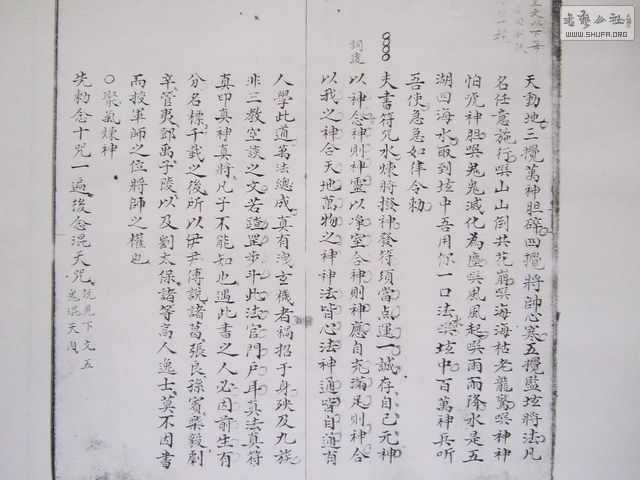 天動地三攪萬神胆碎四攪將帥心寒五攪監坛將法凡
名任意施行吳山山倒共花花崩吳海海枯老龍驚吳神神
怕吳虎神胆吳鬼鬼滅化為塵吳風風起吳雨雨降水是五
湖四海水取到坛中吾用你一口法吳坛中百萬神兵听
吾使急急如律令勅
夫書符咒水煉將撥神發符須當点運一誠存自己元神
詞透
以神念神則神靈以净室合神則神應自充滿足則神合
以我之神合天地萬物之神神法皆心法神通皆自通有
人學此道萬法總成真有洩玄機者禍招于身殃及九族
非三教室談之文若踏罡步斗此法官門户耳真法真符
真印真神真將凡子不能知也遇此書之人必因前生有
分名標千載之後所以伊尹傅説諸葛張良孫賓樂毅劇
辛管夷鄧禹子陵以及劉太保諸等高人逸士莫不因書
而授軍師之位將師之權也
○聚氣煉神
先勅念十咒一遍後念混天咒
説見下文五
先混天内
WWW.SHUFA.ORG